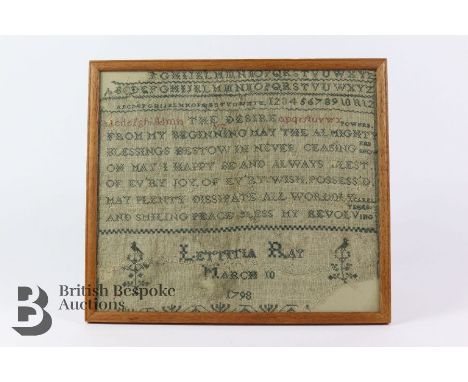 FGHIJKLMNOPQRSTVUWXYZ
ABCDEFGHIJKLMNOPQRSTVUWXYZ
ABCDEFGHIJKLMNOPQRSTVUWXYZ 1 2 3 4 5 6 7 8 9 10 11 12
THE DESIRE opqrstuvwx
FROM MY BEGINNING MAY THE ALMIGHTY POWERS
BLESSINGS BESTOW IN NEVER CEASING SHOW
OH MAY I HAPPY BE AND ALWAYS BLEST
OF EV'RY JOY, OF EV'RY WISH, POSSESS'D
MAY PLENTY DISSIPATE ALL WORLDLY CARES
AND SMILING PEACE BLESS MY REVOLVING YEARS
LETTITIA RAY
MARCH 10
1798
British Bespoke
Auctions
B